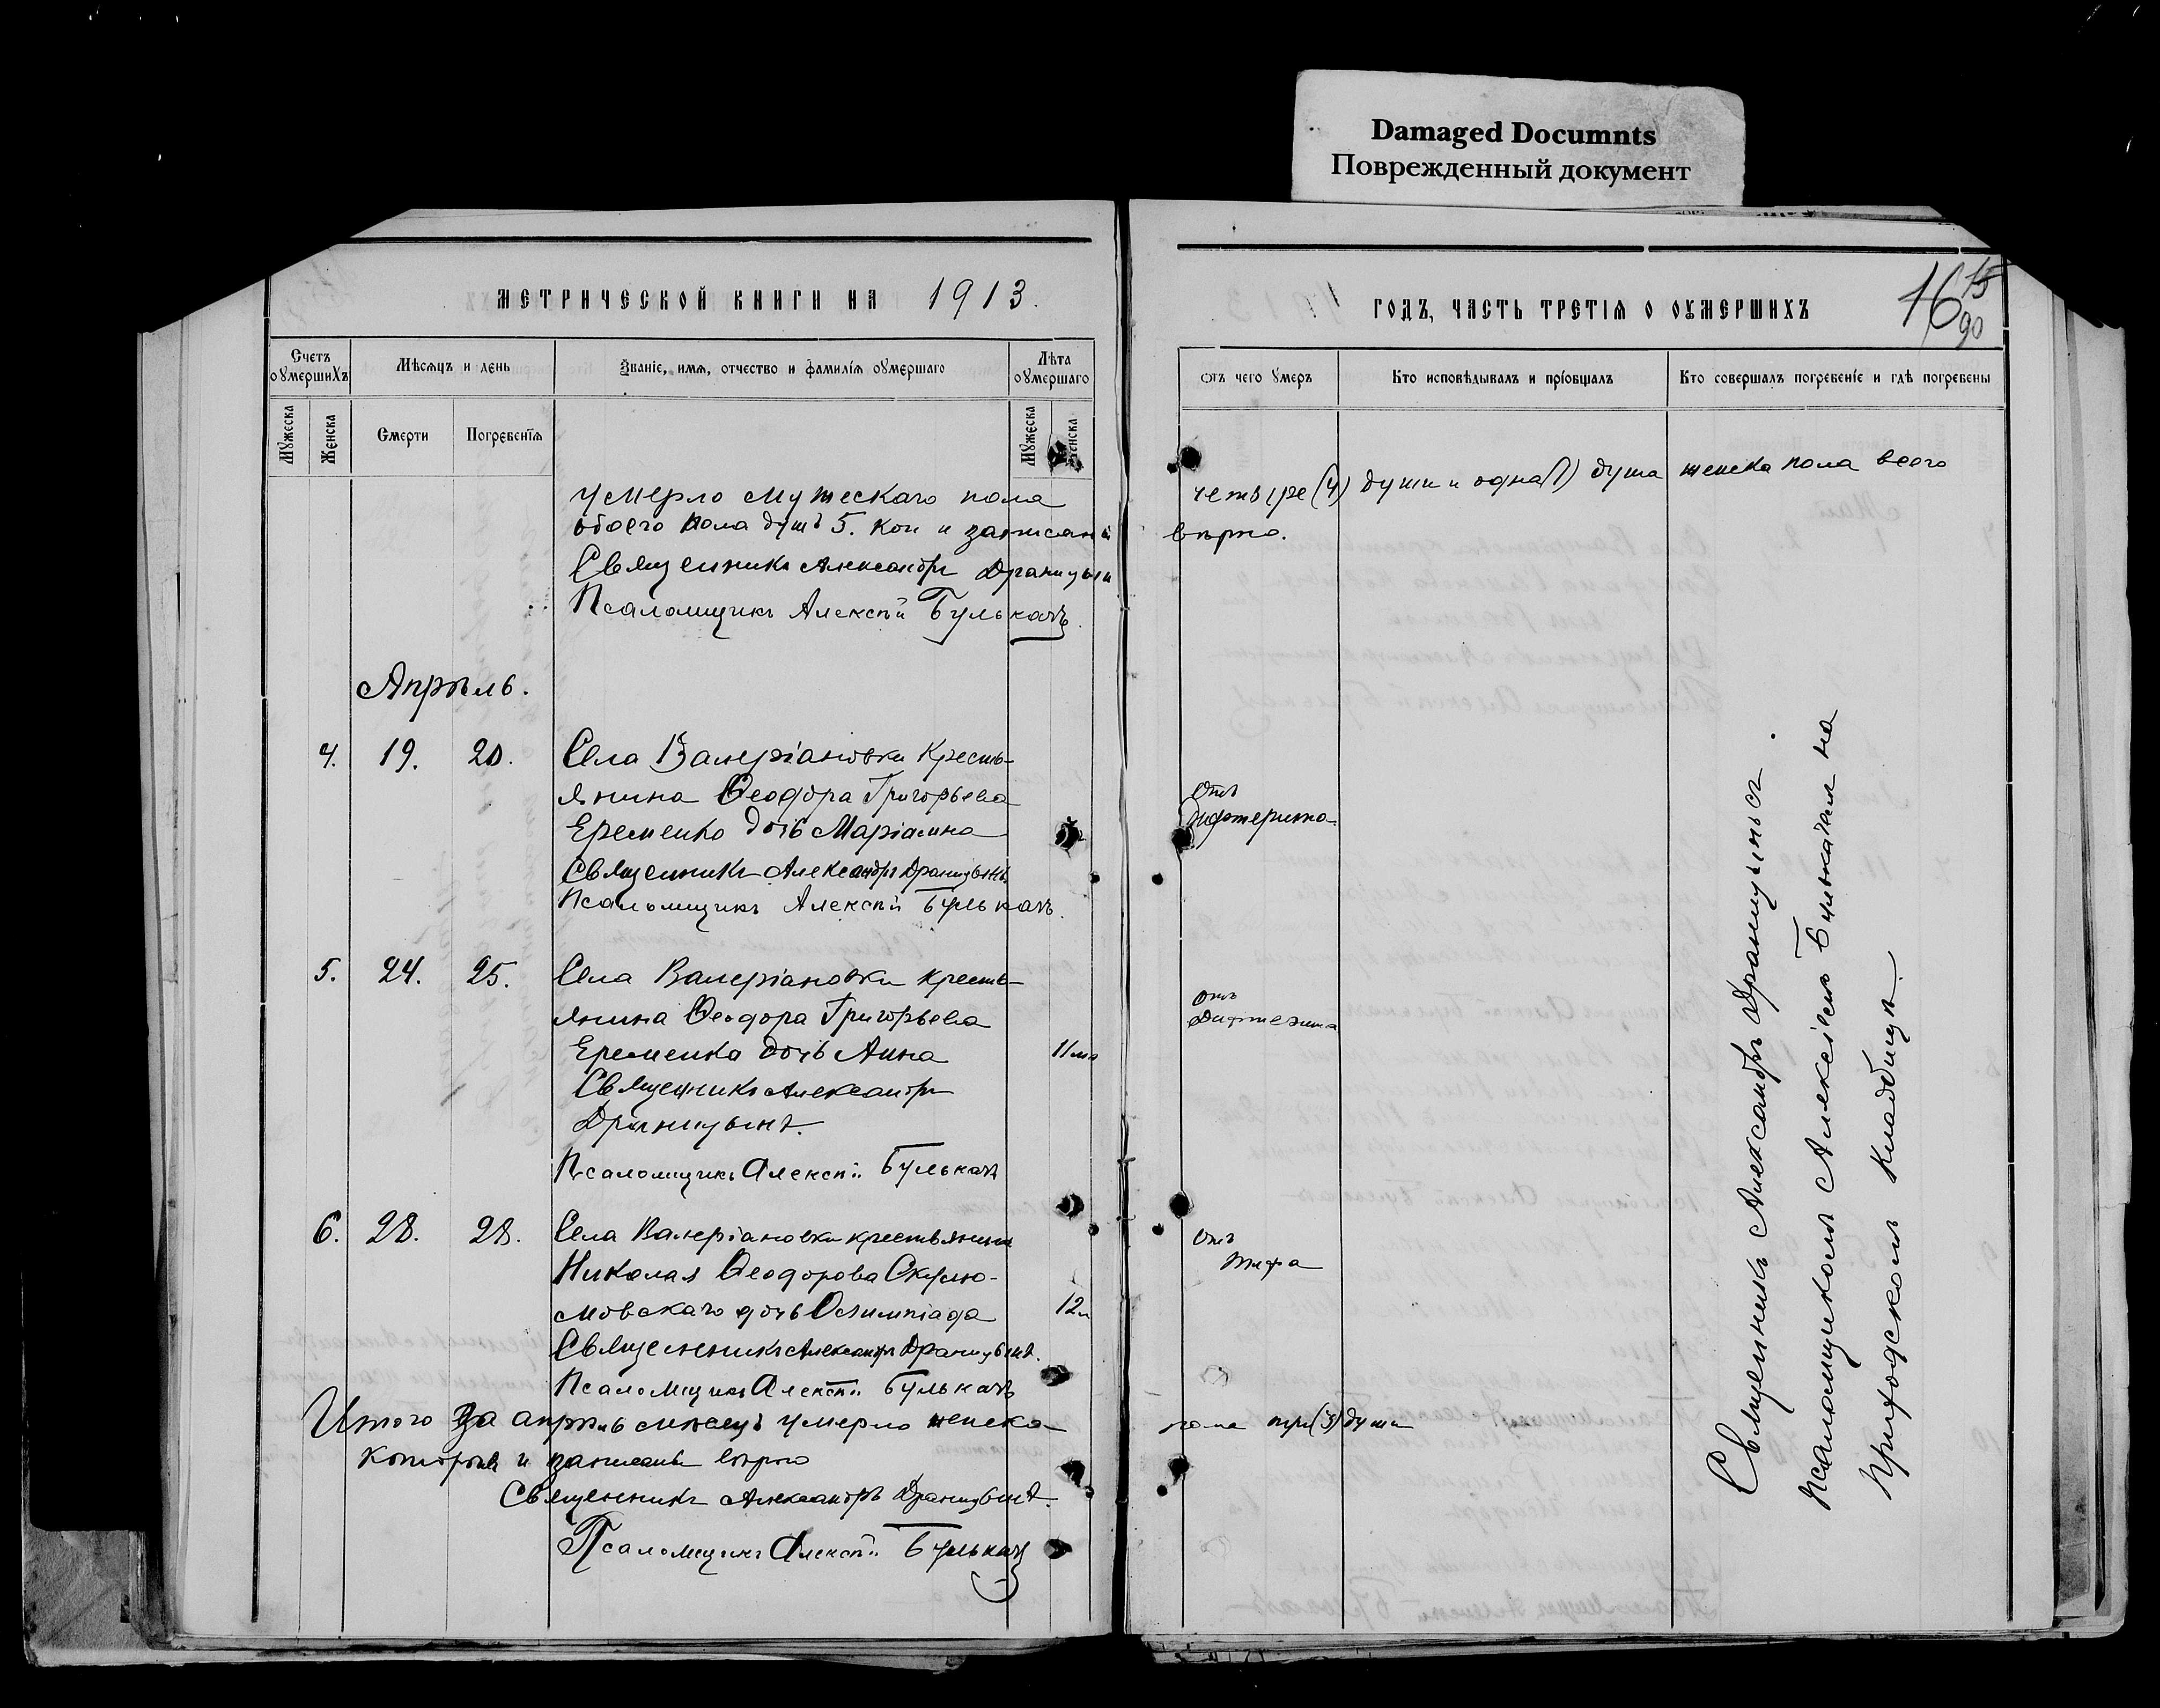 Damaged Documnts
Поврежденный документ
МЕТРИЧЕСКОЙ КНИГИ НА 1913.
ГОДЪ, ЧАСТЬ ТРЕТІЯ О ОУМЕРШИХЪ
16 15
90
Счетъ оумершихъ
Мѣсяцъ и день
Званіе, имя, отчество и фамилія оумершаго
Лѣта оумершаго
Отъ чего умеръ
Кто исповѣдывалъ и пріобщалъ
Кто совершалъ погребеніе и гдѣ погребены
Мужеска
Женска
Смерти
Погребенія
Мужеска
Женска
умерло мужескаго пола четыре (4) души и одна (1) душа женска пола всего
обоего пола душъ 5. кои и записаны вѣрно.
Священникъ Александръ Драницынъ
Псаломщикъ Алексѣй Булькачъ.
Апрѣль.
4. 19. 20. Села Валеріановки кресть-
янина Ѳеодора Григорьева Отъ
Еременко дочь Маріамна дифтерита.
Священникъ Александръ Драницынъ.
Псаломщикъ Алексѣй Булькачъ.
5. 24. 25. Села Валеріановки кресть-
янина Ѳеодора Григорьева Отъ Дифтерита
Еременка дочь Анна 11 м
Священникъ Александръ
Драницынъ.
Псаломщикъ Алексѣй Булькачъ
6. 28. 28. Села Валеріановки крестьянина Отъ
Николая Ѳеодорова Скумо- тифа
мовскаго дочь Олимпіада 12 л
Священникъ Александръ Драницынъ.
Псаломщикъ Алексѣй Булькачъ
Итого за апрѣль мѣсяцъ умерло женска пола три (3) души
которыя и записаны вѣрно
Священникъ Александръ Драницынъ.
Псаломщикъ Алексѣй Булькачъ
Священникъ Александръ Драницынъ съ
псаломщикомъ Алексіемъ Булькачемъ на
приходскомъ кладбищѣ.